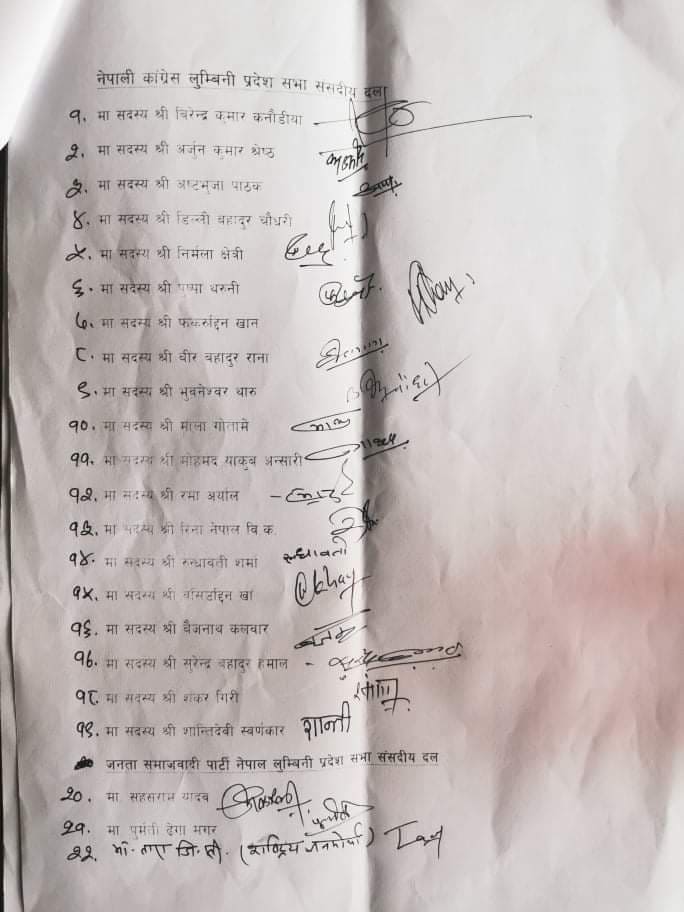 नेपाली कांग्रेस लुम्बिनी प्रदेश सभा संसदीय दल
१. मा सदस्य श्री बिरेन्द्र कुमार कनौडीया
२. मा सदस्य श्री अर्जुन कुमार श्रेष्ठ
३. मा सदस्य श्री अष्टभुजा पाठक
४. मा सदस्य श्री डिल्ली बहादुर चौधरी
५. मा सदस्य श्री निर्मला क्षेत्री
६. मा सदस्य श्री पुष्पा थरुनी
७. मा सदस्य श्री फकरुद्दिन खान
८. मा सदस्य श्री वीर बहादुर राना
९. मा सदस्य श्री भुवनेश्वर थारु
१०. मा सदस्य श्री माला गौतामे
११. मा सदस्य श्री मोहमद याकुब अन्सारी
१२. मा सदस्य श्री रमा अर्याल
१३. मा सदस्य श्री रिना नेपाल वि क.
१४. मा सदस्य श्री रुन्धावती शर्मा रुन्धावती
१५. मा सदस्य श्री वसिउद्दिन खां
१६. मा सदस्य श्री बैजनाथ कलवार
१७. मा सदस्य श्री सुरेन्द्र बहादुर हमाल
१८. मा सदस्य श्री शंकर गिरी
१९. मा सदस्य श्री शान्तिदेवी स्वर्णकार शान्ती
जनता समाजवादी पार्टी नेपाल लुम्बिनी प्रदेश सभा संसदीय दल
२०. मा. सहसराम यादव
२१. मा पुमती ढेगा मगर
२२. मा. तारा जि.सी. (राष्ट्रिय जनमोर्चा)